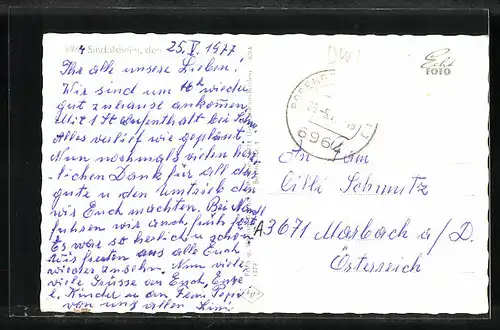 6964 Sindolsheim, den 25.V.1977
Ihr alle unsere Lieben.
Wir sind um 16h wieder
gut zuhause ankommen.
Mit 1 St Aufenthalt bei
Alles verlief wie geplant.
Nun nochmals vielen herz-
lichen Dank für all das
gute u den Umtrieb den
wir Euch machten. Bei
fuhren wir auch früh fort.
Es war so herlich u schön
wir freuten uns alle Euch
wieder zusehn. Nun viele
viele Grüsse an Euch, Enge
l, Kinder u an Frau
von uns allen Lini
Echt
FOTO
6964
An Fam
Cilli Schmutz
A 3671 Marbach a/D.
Österreich